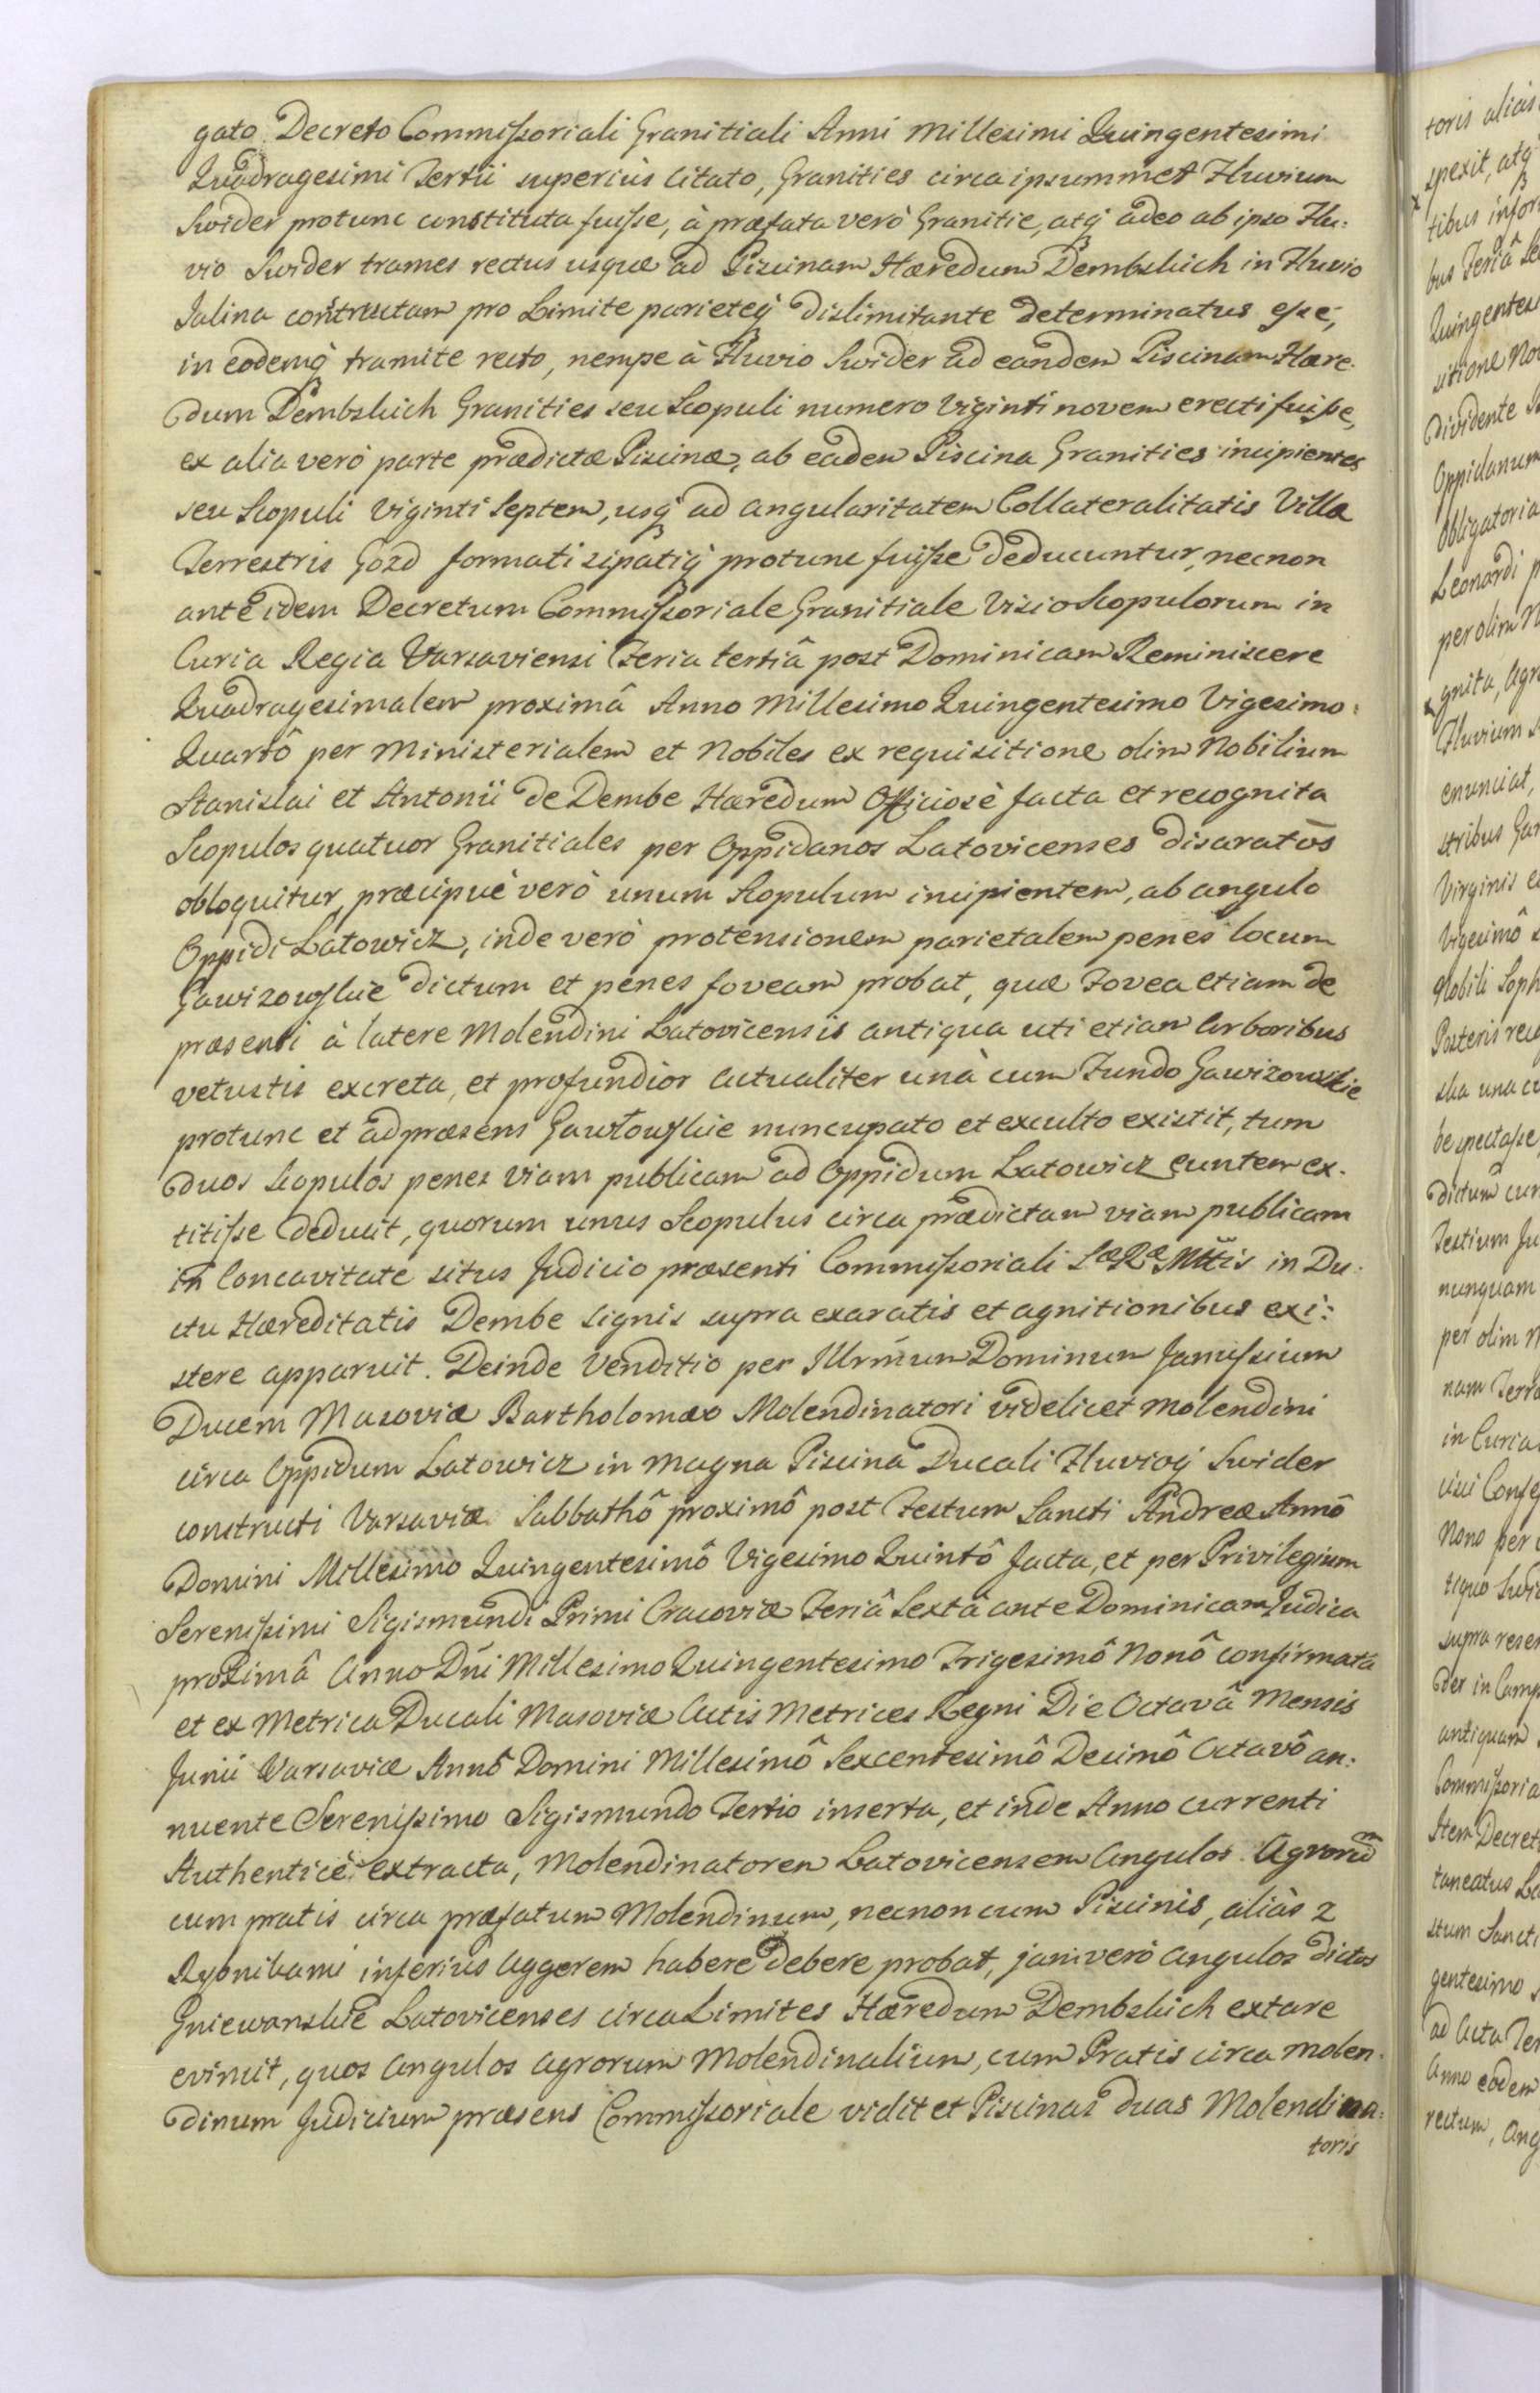 gato Decreto Commissoriali Granitiali Anni Millesimi Quingentesimi
Quadragesimi Tertii superiùs citato, Granities circa ipsummet Fluvium
Swider protunc constituta fuisse, à præfata verò Granitie, atq adeo ab ipso Flu:
vio Swider trames rectus usque ad Piscinam Hæredum Dembskich in Fluvio
Jalina constructam pro Limite parieteq dislimitante determinatus esse,
in eodemq tramite recto, nempe à Fluvio Swider ad eandem Piscinam Hære:
dum Dembskich Granities seu Scopuli numero Viginti novem erecti fuisse,
ex alia verò parte prædictæ Piscinæ, ab eadem Piscina Granities incipientes
seu Scopuli Viginti Septem, usq ad angularitatem Collateralitatis Villæ
Terrestris Gozd formati sipatiq protunc fuisse deducuntur, necnon
ante idem Decretum Commissoriale Granitiale Visio Scopulorum in
Curia Regia Varsaviensi Feria tertiâ post Dominicam Reminiscere
Quadragesimalem proximâ Anno Millesimo Quingentesimo Vigesimo:
Quartô per Ministerialem et Nobiles ex requisitione olim Nobilium
Stanislai et Antonii de Dembe Hæredum Officiosè facta et recognita
Scopulos quatuor Granitiales per Oppidanos Latovicenses disaratos
obloquitur, præcipuè verò unum Scopulum incipientem, ab angulo
Oppidi Latowicz, inde verò protensionem parietalem penes locum
Gawizowskie dictum et penes foveam probat, quæ Fovea etiam de
præsenti à latere Molendini Latovicensis antiqua uti etiam Arboribus
vetustis excreta, et profundior Actualiter unà cum Fundo Gawizowskie
protunc et ad præsens Gawłowskie nuncupato et exculto existit, tum
duos Scopulos penes Viam publicam ad Oppidum Latowicz euntem ex:
titisse deducit, quorum unus Scopulus circa prædictam viam publicam
in Concavitate situs Judicio præsenti Commissoriali SæRæ Mttis in Du:
ctu Hæreditatis Dembe Signis supra exaratis et agnitionibus exi:
stere apparuit. Deinde Venditio per Illrmum Dominum Janussium
Ducem Masoviæ Bartholomæo Molendinatori videlicet molendini
circa Oppidum Latowicz in magna Piscina Ducali Fluvioq Swider
constructi Varsaviæ Sabbathô proximô post Festum Sancti Andreæ Annô
Domini Millesimo Quingentesimô Vigesimo Quintô facta, et per Privilegium
Serenissimi Sigismundi Primi Cracoviæ Feriâ Sextâ ante Dominicam Judica
proximâ Anno Dñi Millesimo Quingentesimo Trigesimô Nonô confirmata
et ex Metrica Ducali Masoviæ Actis Metrices Regni Die Octavâ Mensis
Junii Varsaviæ Annô Domini Millesimô Sexcentesimô Decimô Octavô an:
nuente Serenissimo Sigismundo Tertio inserta, et inde Anno currenti
Authenticè extracta, Molendinatorem Latovicensem Angulos Agrorũ
cum pratis circa præfatum Molendinum, necnon cum Piscinis, aliàs z
Rybnikami inferius Aggerem habere debere probat, jam verò Angulos dictos
Gniewanskie Latovicenses circa Limites Hæredum Dembskich extare
evincit, quos Angulos Agrorum Molendinalium, cum Pratis circa molen:
dinum Judicium præsens Commissoriale vidit et Piscinas duas Molendina:
toris